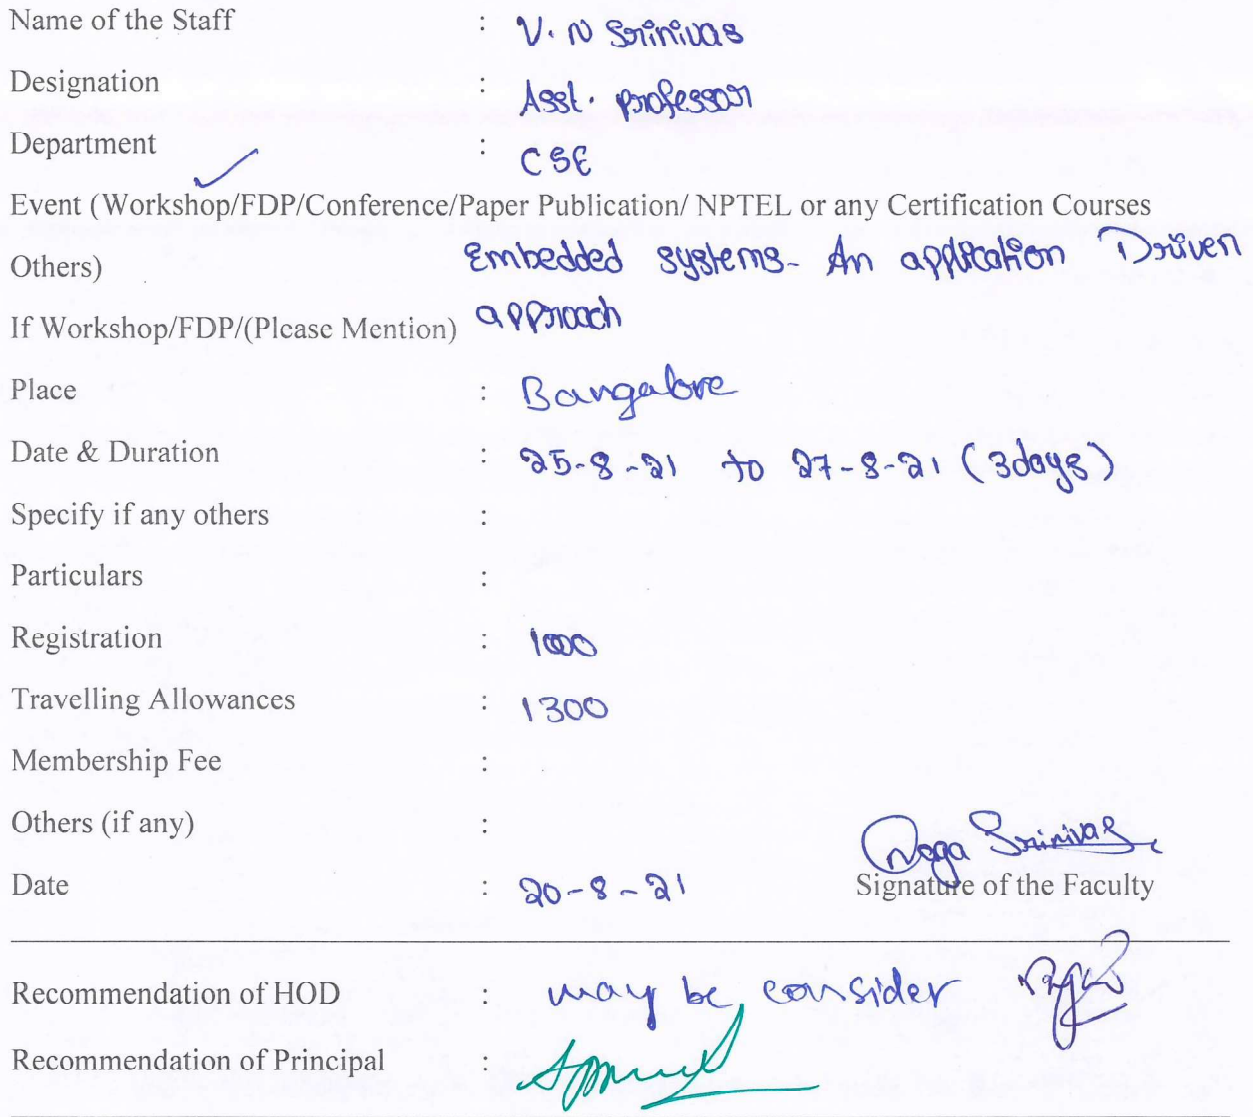 Name of the Staff : V. N Srinivas
Designation : Asst. professor
Department : CSE
Event (Workshop/FDP/Conference/Paper Publication/ NPTEL or any Certification Courses
Others) Embedded systems- An application Driven
If Workshop/FDP/(Please Mention) approach
Place : Bangalore
Date & Duration : 25-8-21 to 27-8-21 (3days)
Specify if any others :
Particulars :
Registration : 1000
Travelling Allowances : 1300
Membership Fee :
Others (if any) :
Naga Srinivas
Date : 20-8-21 Signature of the Faculty
Recommendation of HOD : may be consider
Recommendation of Principal :